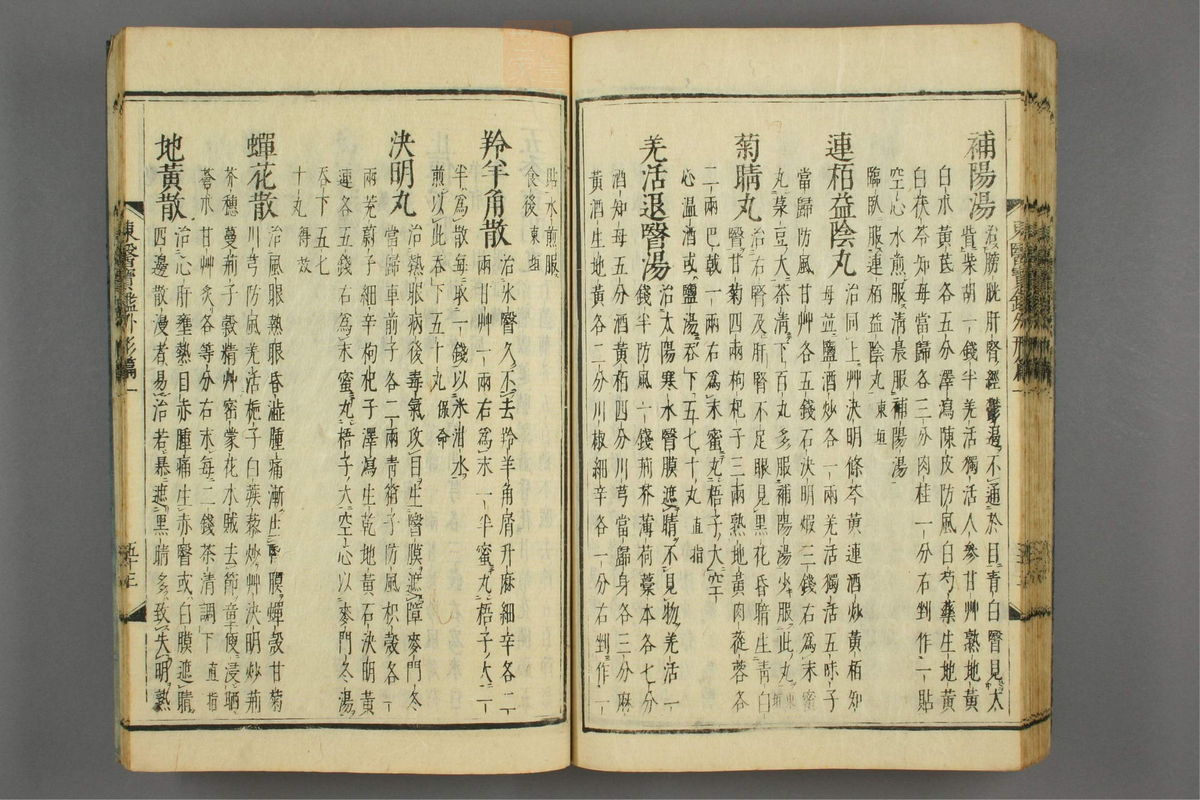 補陽湯 治膀胱肝腎經鬱遏不通於目青白瞖見大
眥柴胡一錢半羌活獨活人參甘艸熟地黃
白朮黃芪各五分澤瀉陳皮防風白芍藥生地黃
白茯苓知母當歸各三分肉桂一分右剉作一貼
空心水煎服淸晨服補陽湯
臨臥服連栢益陰丸 東垣
連栢益陰丸 治同上艸決明條芩黃連酒炒黃栢知
母並鹽酒炒各一兩羌活獨活五味子
當歸防風甘艸各五錢石決明煆三錢右爲末蜜
丸菉豆大茶淸下百丸多服補陽湯少服此丸 東垣
菊睛丸 治右腎及肝腎不足眼見黑花昏暗生靑白
瞖甘菊四兩枸杞子三兩熟地黃肉蓯蓉各
二兩巴戟一兩右爲末蜜丸梧子大空
心温酒或鹽湯呑下五七十丸 直指
羌活退瞖湯 治太陽寒水瞖膜遮睛不見物羌活一
錢半防風一錢荊芥薄荷藁本各七分
酒知母五分酒黃栢四分川芎當歸身各三分麻
黃酒生地黃各二分川椒細辛各一分右剉作一
貼水煎服
食後 東垣
羚羊角散 治氷瞖久不去羚羊角屑升麻細辛各二
兩甘艸一兩右爲末一半蜜丸梧子大一
半爲散每取一錢以米泔水
煎以此呑下五十丸 保命
決明丸 治熱眼病後毒氣攻目生瞖膜遮障麥門冬
當歸車前子各二兩靑箱子防風枳殼各一
兩茺蔚子細辛枸杞子澤瀉生乾地黃石決明黃
連各五錢右爲末蜜丸梧子大空心以麥門冬湯
呑下五七
十丸 得效
蟬花散 治風眼熱眼昏澁腫痛漸生瞖膜蟬殼甘菊
川芎防風羌活梔子白蒺藜炒艸決明炒荊
芥穗蔓荊子穀精艸密蒙花木賊去節童便浸晒
蒼朮甘艸炙各等分右末每二錢茶清調下 直指
地黃散 治心肝壅熱目赤腫痛生赤瞖或白膜遮睛
四邊散漫者易治若暴遮黑睛多致失明熟
東醫寶鑑外形篇一